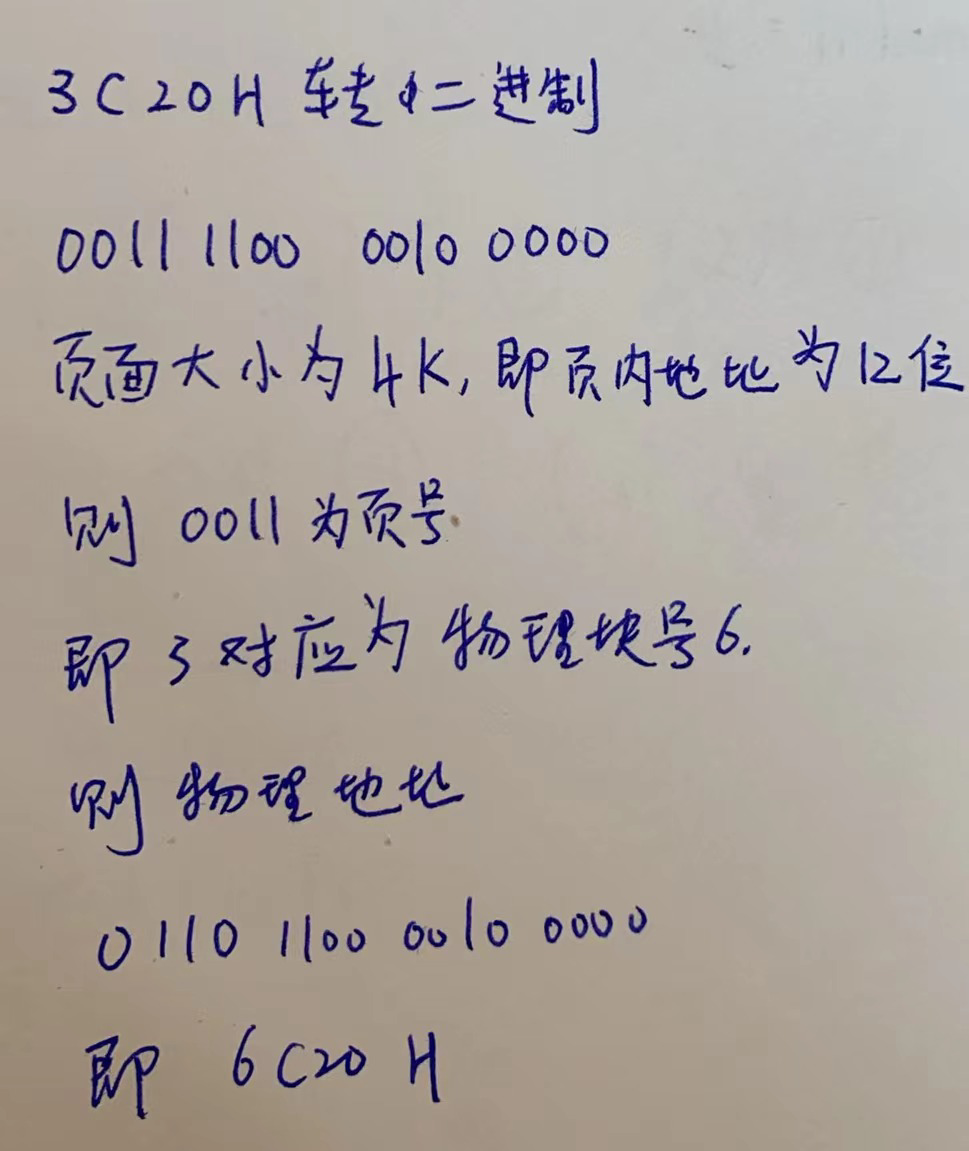 3C20H 转中二进制
0011 1100 0010 0000
页面大小为4K,即页内地址为12位
则 0011为页号
即 3 对应为 物理块号6.
则 物理地址
0110 1100 0010 0000
即 6C20 H